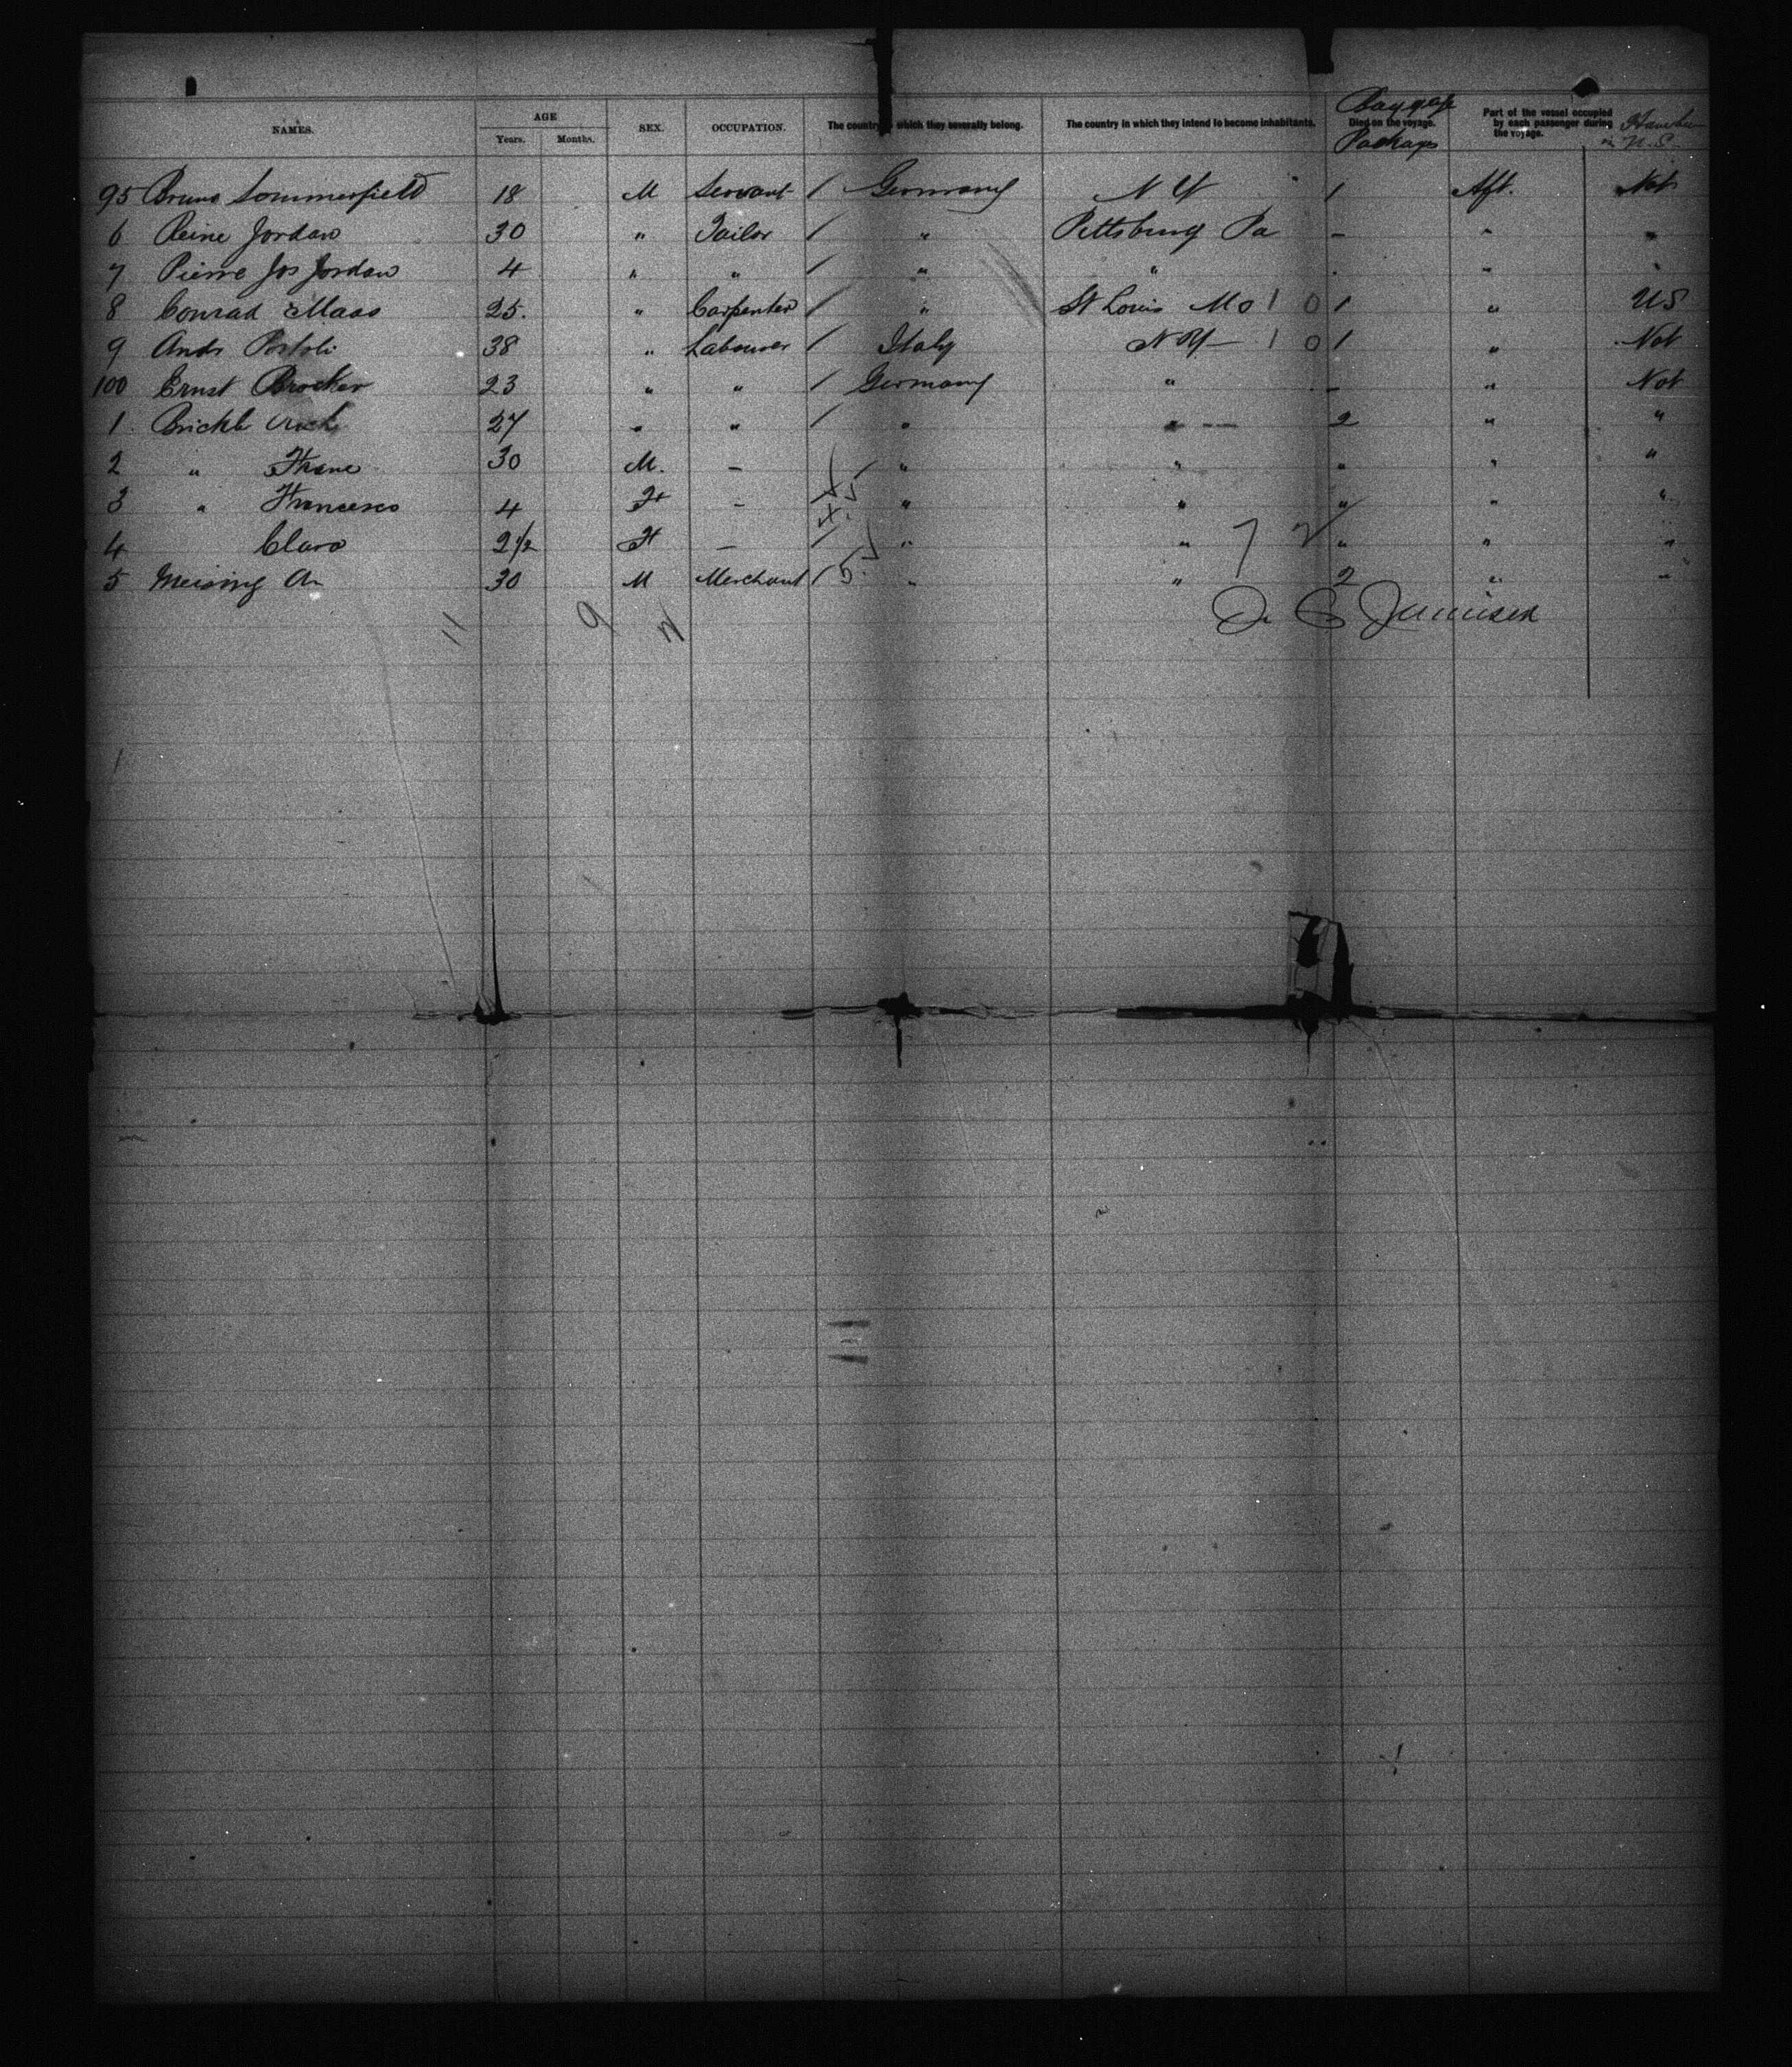 NAMES. AGE SEX. OCCUPATION. The country which they severally belong. The country in which they intend to become inhabitants. Baggage Died on the voyage. Part of the vessel occupied by each passenger during the voyage.
Years. Months. Packages U.S.
95 Bruno Sommerfield 18 M Servant / Germany N Y 1 Aft. Not
6 Reine Jordan 30 " Tailor / " Pittsburg Pa - " "
7 Pierre Jos Jordan 4 " " / " " . " "
8 Conrad Maas 25. " Carpenter / " St Louis Mo 1 0 1 " US
9 Andr 38 " Labourer / Italy N Y 1 0 1 " Not
100 Ernst Brocker 23 " " / Germany " - " Not
1 27 " " / " " 2 " "
2 " 30 M. - / " " " " "
3 " Francesco 4 F - " " " " "
4 Clara 2 1/2 F - / " " " " "
5 Meising 30 M Merchant / 5 " " 2 " "
11 9 2
Jamieson